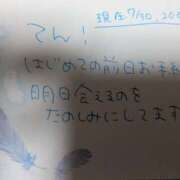 現在7/30, 20:
てん!
はじめての前日お手紙
明日会えるのを
たのしみにしてます